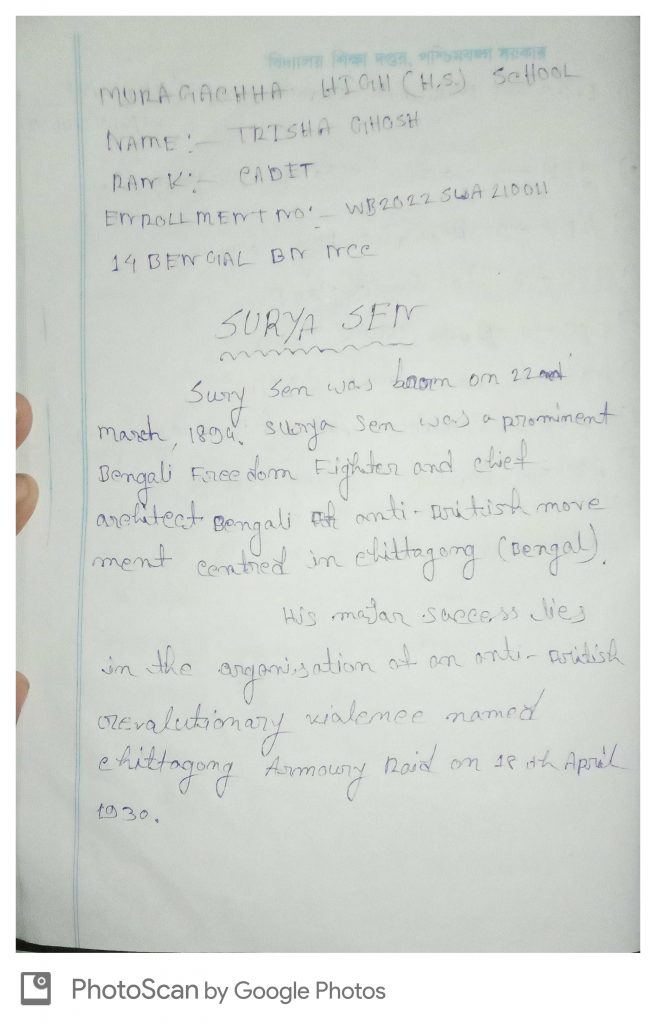 विद्यालय शिक्षा
MURAGACHHA HIGH (H.S.) SCHOOL
NAME :- TRISHA GHOSH
RANK :- CADET
ENROLLMENT NO :- WB2022SWA210011
14 BENGAL BN NCC
SURYA SEN
Sury Sen was boorn on 22nd
march, 1894. surya sen was a prominent
Bengali Freedom Fighter and chief
architect Bengali of anti-British move
ment centred in chittagong (Bengal).
His major success lies
in the organisation of an anti-British
revalutionary vialence named
chittagong Armoury Raid on 18 th April
1930.
PhotoScan by Google Photos